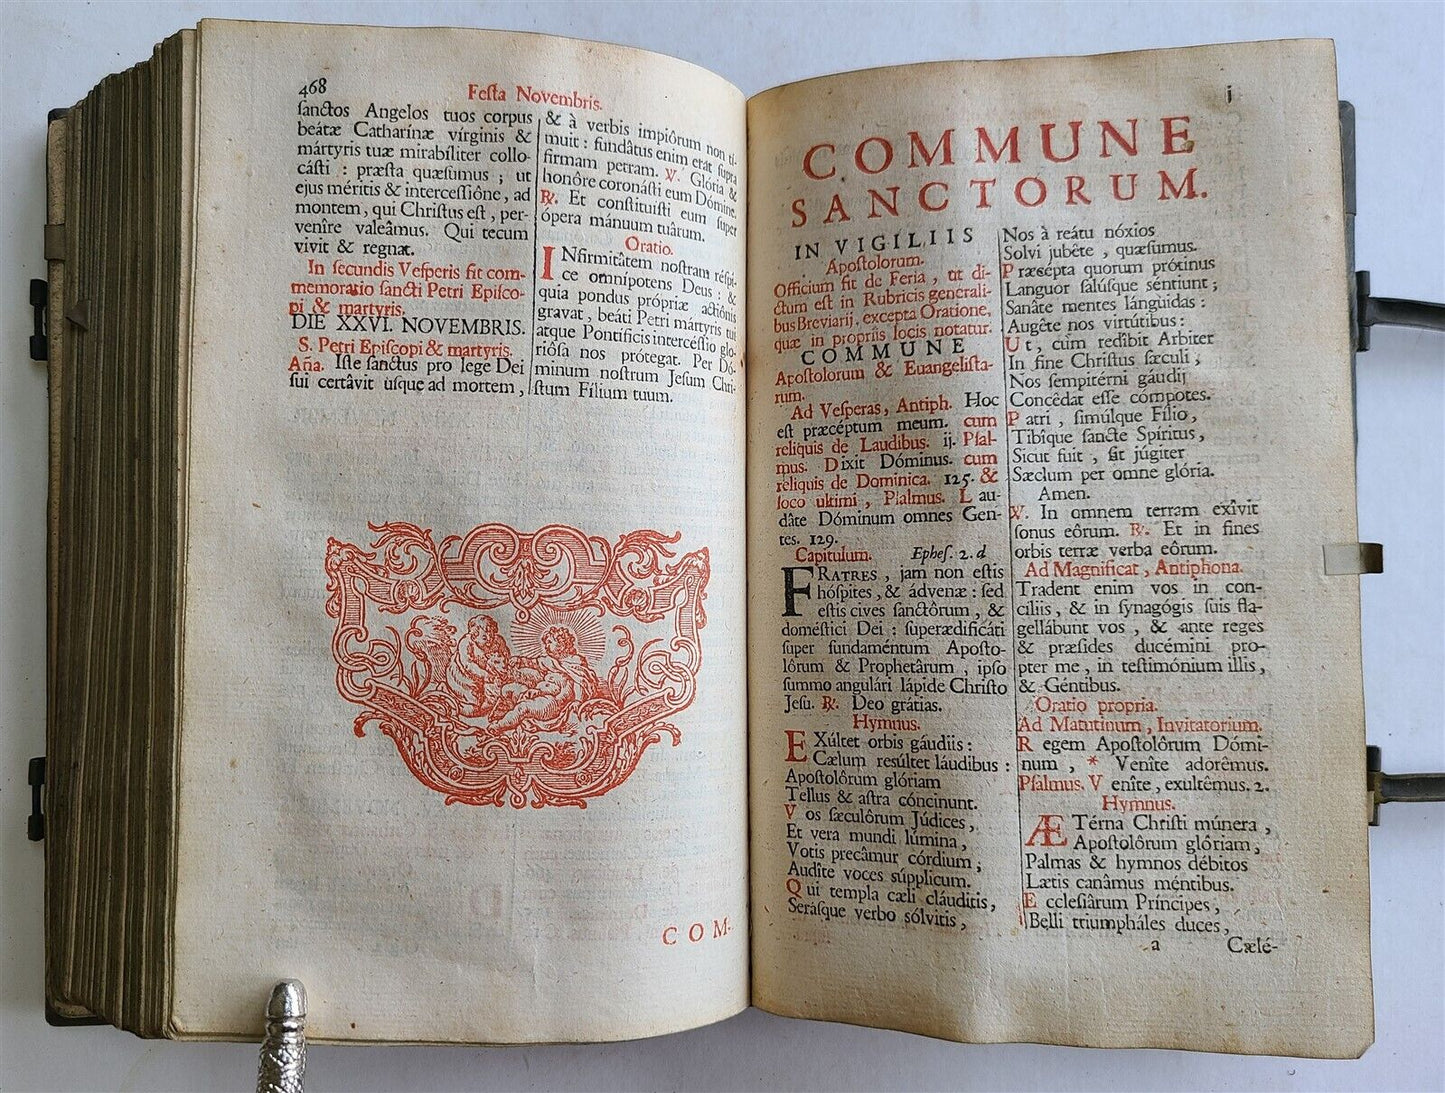 468
Feſta Novembris.
ſanctos Angelos tuos corpus
beátæ Catharínæ vírginis &
mártyris tuæ mirabíliter collo-
cáſti : præſta quæſumus ; ut
ejus méritis & interceſſiône, ad
montem, qui Chriſtus eſt, per-
venîre valeâmus. Qui tecum
vivit & regnat.
In ſecundis Veſperis fit com-
memoratio ſancti Petri Epiſco-
pi & martyris.
DIE XXVI. NOVEMBRIS.
S. Petri Epiſcopi & martyris.
Aña. Iſte ſanctus pro lege Dei
ſui certâvit uſque ad mortem,
& à verbis impiôrum non tí-
muit : fundâtus enim erat ſupra
firmam petram. ℣. Glória &
honôre coronáſti eum Dómine.
℟. Et conſtituíſti eum ſuper
ópera mánuum tuârum.
Oratio.
INfirmitâtem noſtram réſpi-
ce omnípotens Deus : &
quia pondus própriæ actiônis
gravat, beáti Petri mártyris tui
atque Pontíficis interceſſio glo-
riôſa nos prótegat. Per Dó-
minum noſtrum Jeſum Chri-
ſtum Fílium tuum.
COM-
j
COMMUNE
SANCTORUM.
IN VIGILIIS
Apoſtolorum.
Officium fit de Feria, ut di-
ctum eſt in Rubricis generali-
bus Breviarij, excepta Oratione,
quæ in propriis locis notatur.
COMMUNE
Apoſtolorum & Euangeliſta-
rum.
Ad Veſperas, Antiph. Hoc
eſt præcéptum meum. cum
reliquis de Laudibus. ij. Pſal-
mus. Dixit Dóminus. cum
reliquis de Dominica. 125. &
loco ultimi, Pſalmus. Lau-
dâte Dóminum omnes Gen-
tes. 129.
Capitulum. Epheſ. 2. d
FRATRES, jam non eſtis
hóſpites, & ádvenæ : ſed
eſtis cives ſanctôrum, &
doméſtici Dei : ſuperædificáti
ſuper fundaméntum Apoſto-
lôrum & Prophetârum, ipſo
ſummo angulári lápide Chriſto
Jeſu. ℟. Deo grátias.
Hymnus.
EXúltet orbis gáudiis :
Cælum reſúltet láudibus :
Apoſtolôrum glóriam
Tellus & aſtra cóncinunt.
Vos ſæculôrum Júdices,
Et vera mundi lúmina,
Votis precâmur córdium ;
Audîte voces súpplicum.
Qui templa cæli cláuditis,
Seráſque verbo sólvitis,
Nos à reátu nóxios
Solvi jubête, quæſumus.
Præcépta quorum prótinus
Languor ſalúſque séntiunt ;
Sanâte mentes lánguidas :
Augête nos virtútibus :
Ut, cum redîbit Arbiter
In fine Chriſtus ſæculi,
Nos ſempitérni gáudij
Concêdat eſſe cómpotes.
Patri, ſimúlque Fílio,
Tibîque ſancte Spíritus,
Sicut fuit, ſit júgiter
Sæclum per omne glória.
Amen.
℣. In omnem terram exîvit
ſonus eôrum. ℟. Et in fines
orbis terræ verba eôrum.
Ad Magnificat, Antiphona.
Tradent enim vos in con-
cíliis, & in ſynagógis ſuis fla-
gellábunt vos, & ante reges
& præſides ducémini pro-
pter me, in teſtimónium illis,
& Géntibus.
Oratio propria.
Ad Matutinum, Invitatorium.
Regem Apoſtolôrum Dómi-
num, * Venîte adorêmus.
Pſalmus. Venîte, exultêmus. 2.
Hymnus.
ÆTérna Chriſti múnera,
Apoſtolôrum glôriam,
Palmas & hymnos débitos
Lætis canâmus méntibus.
Eccleſiârum Príncipes,
Belli triumpháles duces,
a Cælé-